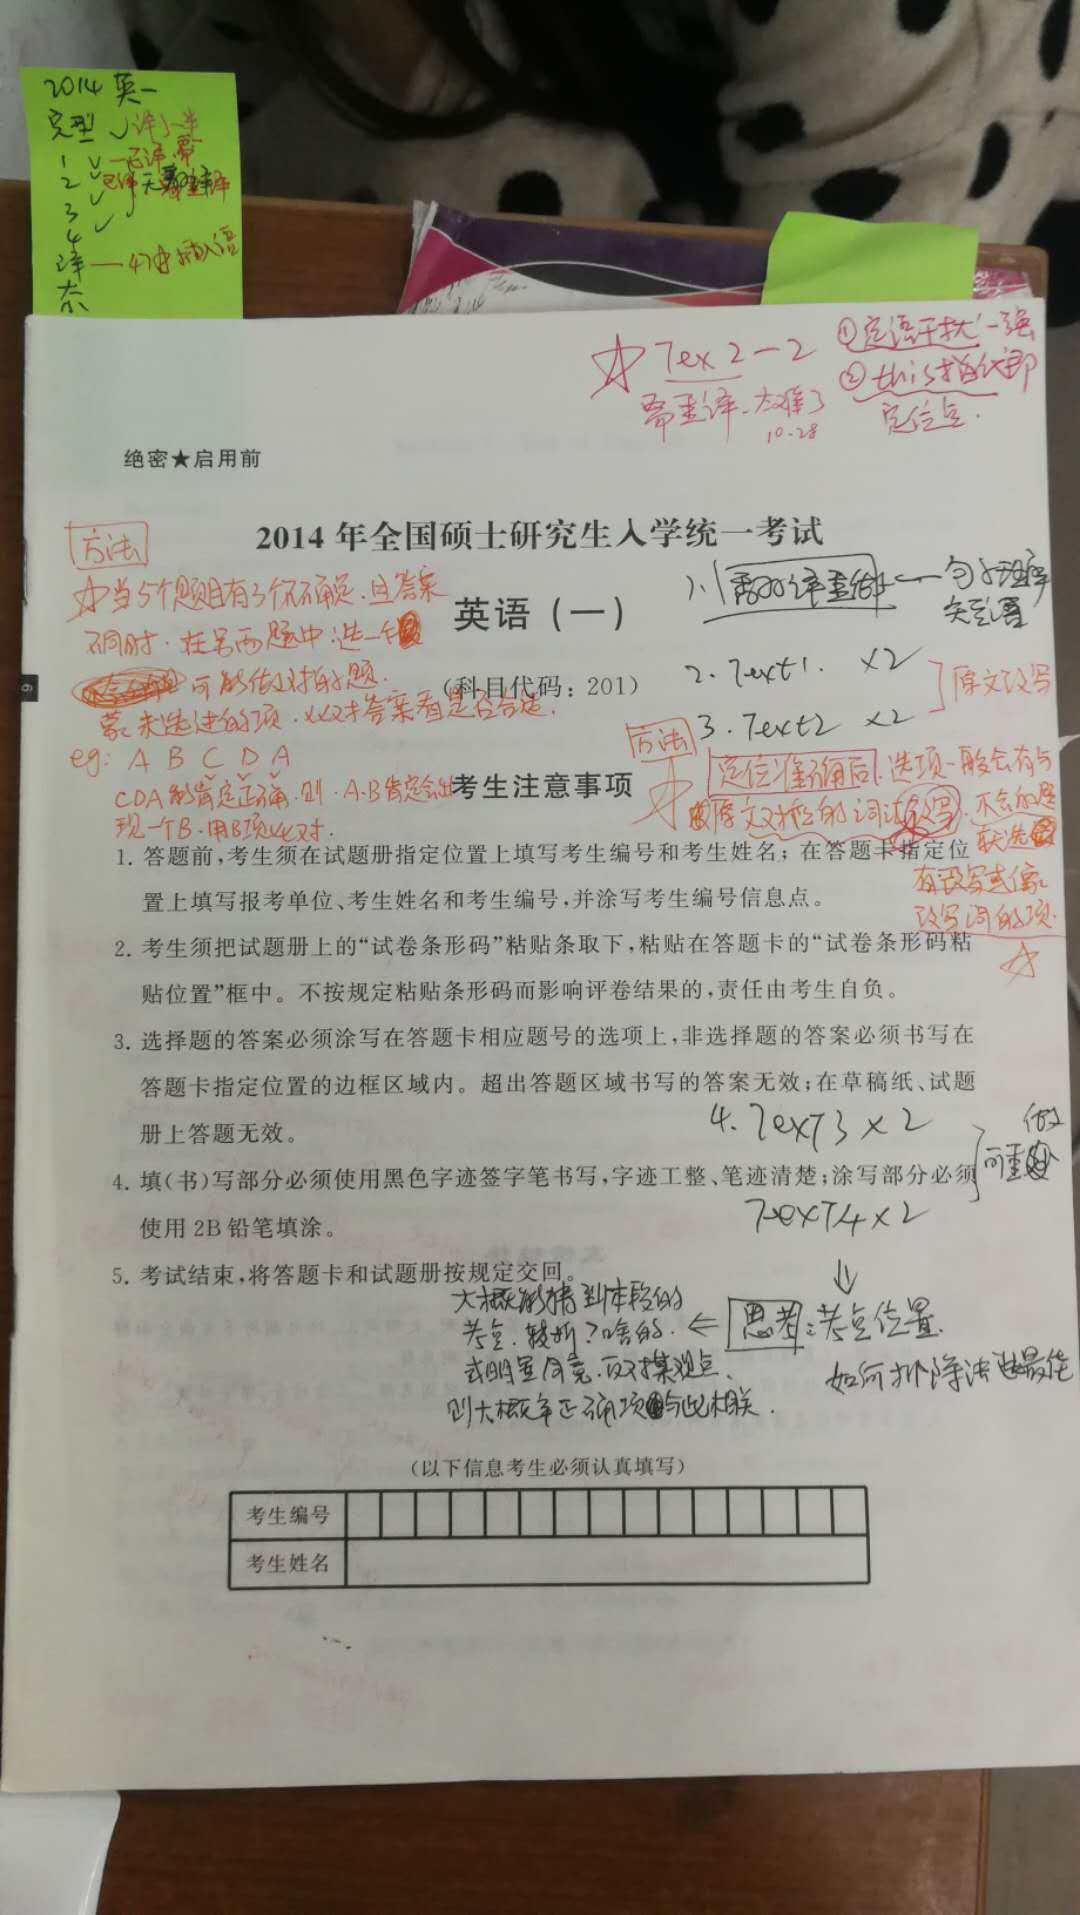 2014 英一
完型
1
2
3
4
Tex 2-2
①定语干扰一强
②this指代即
定位点.
需重译.太难了
10-28
绝密★启用前
2014 年全国硕士研究生入学统一考试
英语(一)
(科目代码:201)
方法
当5个题目有3个不确定.且答案
不同时.在另两题中.选一个
可能做对的题.
蒙未选过的项.
eg: A B C D A
CDA 肯定正确.则.A.B肯定会出
现一个B.用B项
句子理解
2. Text1. ×2
3. Text2 ×2
原文改写
方法
定位准确后.选项一般会有与
原文对应的词改写.不会的题
就选
有改写或像
改写词的项.
考生注意事项
1. 答题前,考生须在试题册指定位置上填写考生编号和考生姓名;在答题卡指定位
置上填写报考单位、考生姓名和考生编号,并涂写考生编号信息点。
2. 考生须把试题册上的“试卷条形码”粘贴条取下,粘贴在答题卡的“试卷条形码粘
贴位置”框中。不按规定粘贴条形码而影响评卷结果的,责任由考生自负。
3. 选择题的答案必须涂写在答题卡相应题号的选项上,非选择题的答案必须书写在
答题卡指定位置的边框区域内。超出答题区域书写的答案无效;在草稿纸、试题
册上答题无效。
4. Text3 ×2
4. 填(书)写部分必须使用黑色字迹签字笔书写,字迹工整、笔迹清楚;涂写部分必须
使用 2B 铅笔填涂。
Text4 ×2
可重做
5. 考试结束,将答题卡和试题册按规定交回。
思考:考点位置.
如何排除法也最佳
大概能猜到本段的
考点.转折?啥的.
则大概率正确项与此相关.
(以下信息考生必须认真填写)
考生编号
考生姓名